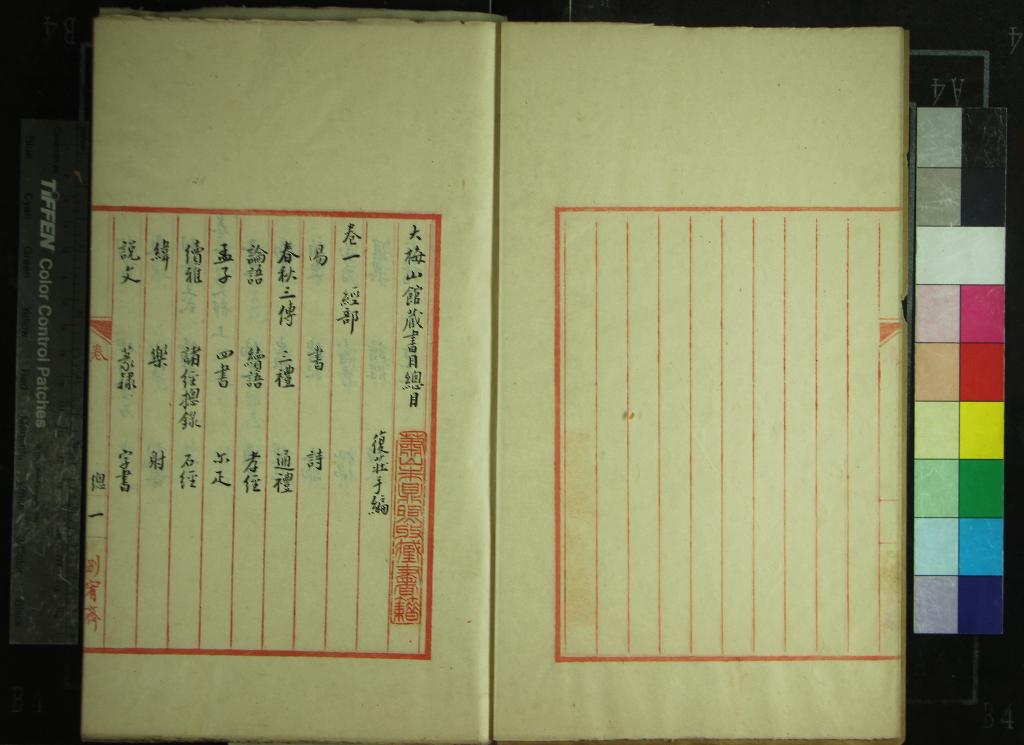 大梅山館藏書目總目
復莊手編
卷一 經部
易 書 詩
春秋三傳 三禮 通禮
論語 續語 孝經
孟子 四書 尔疋
續雅 諸經揔錄 石經
緯 樂 射
説文 篆隸 字書
卷
總 一
TIFFEN Color Control Patches
A4
B4